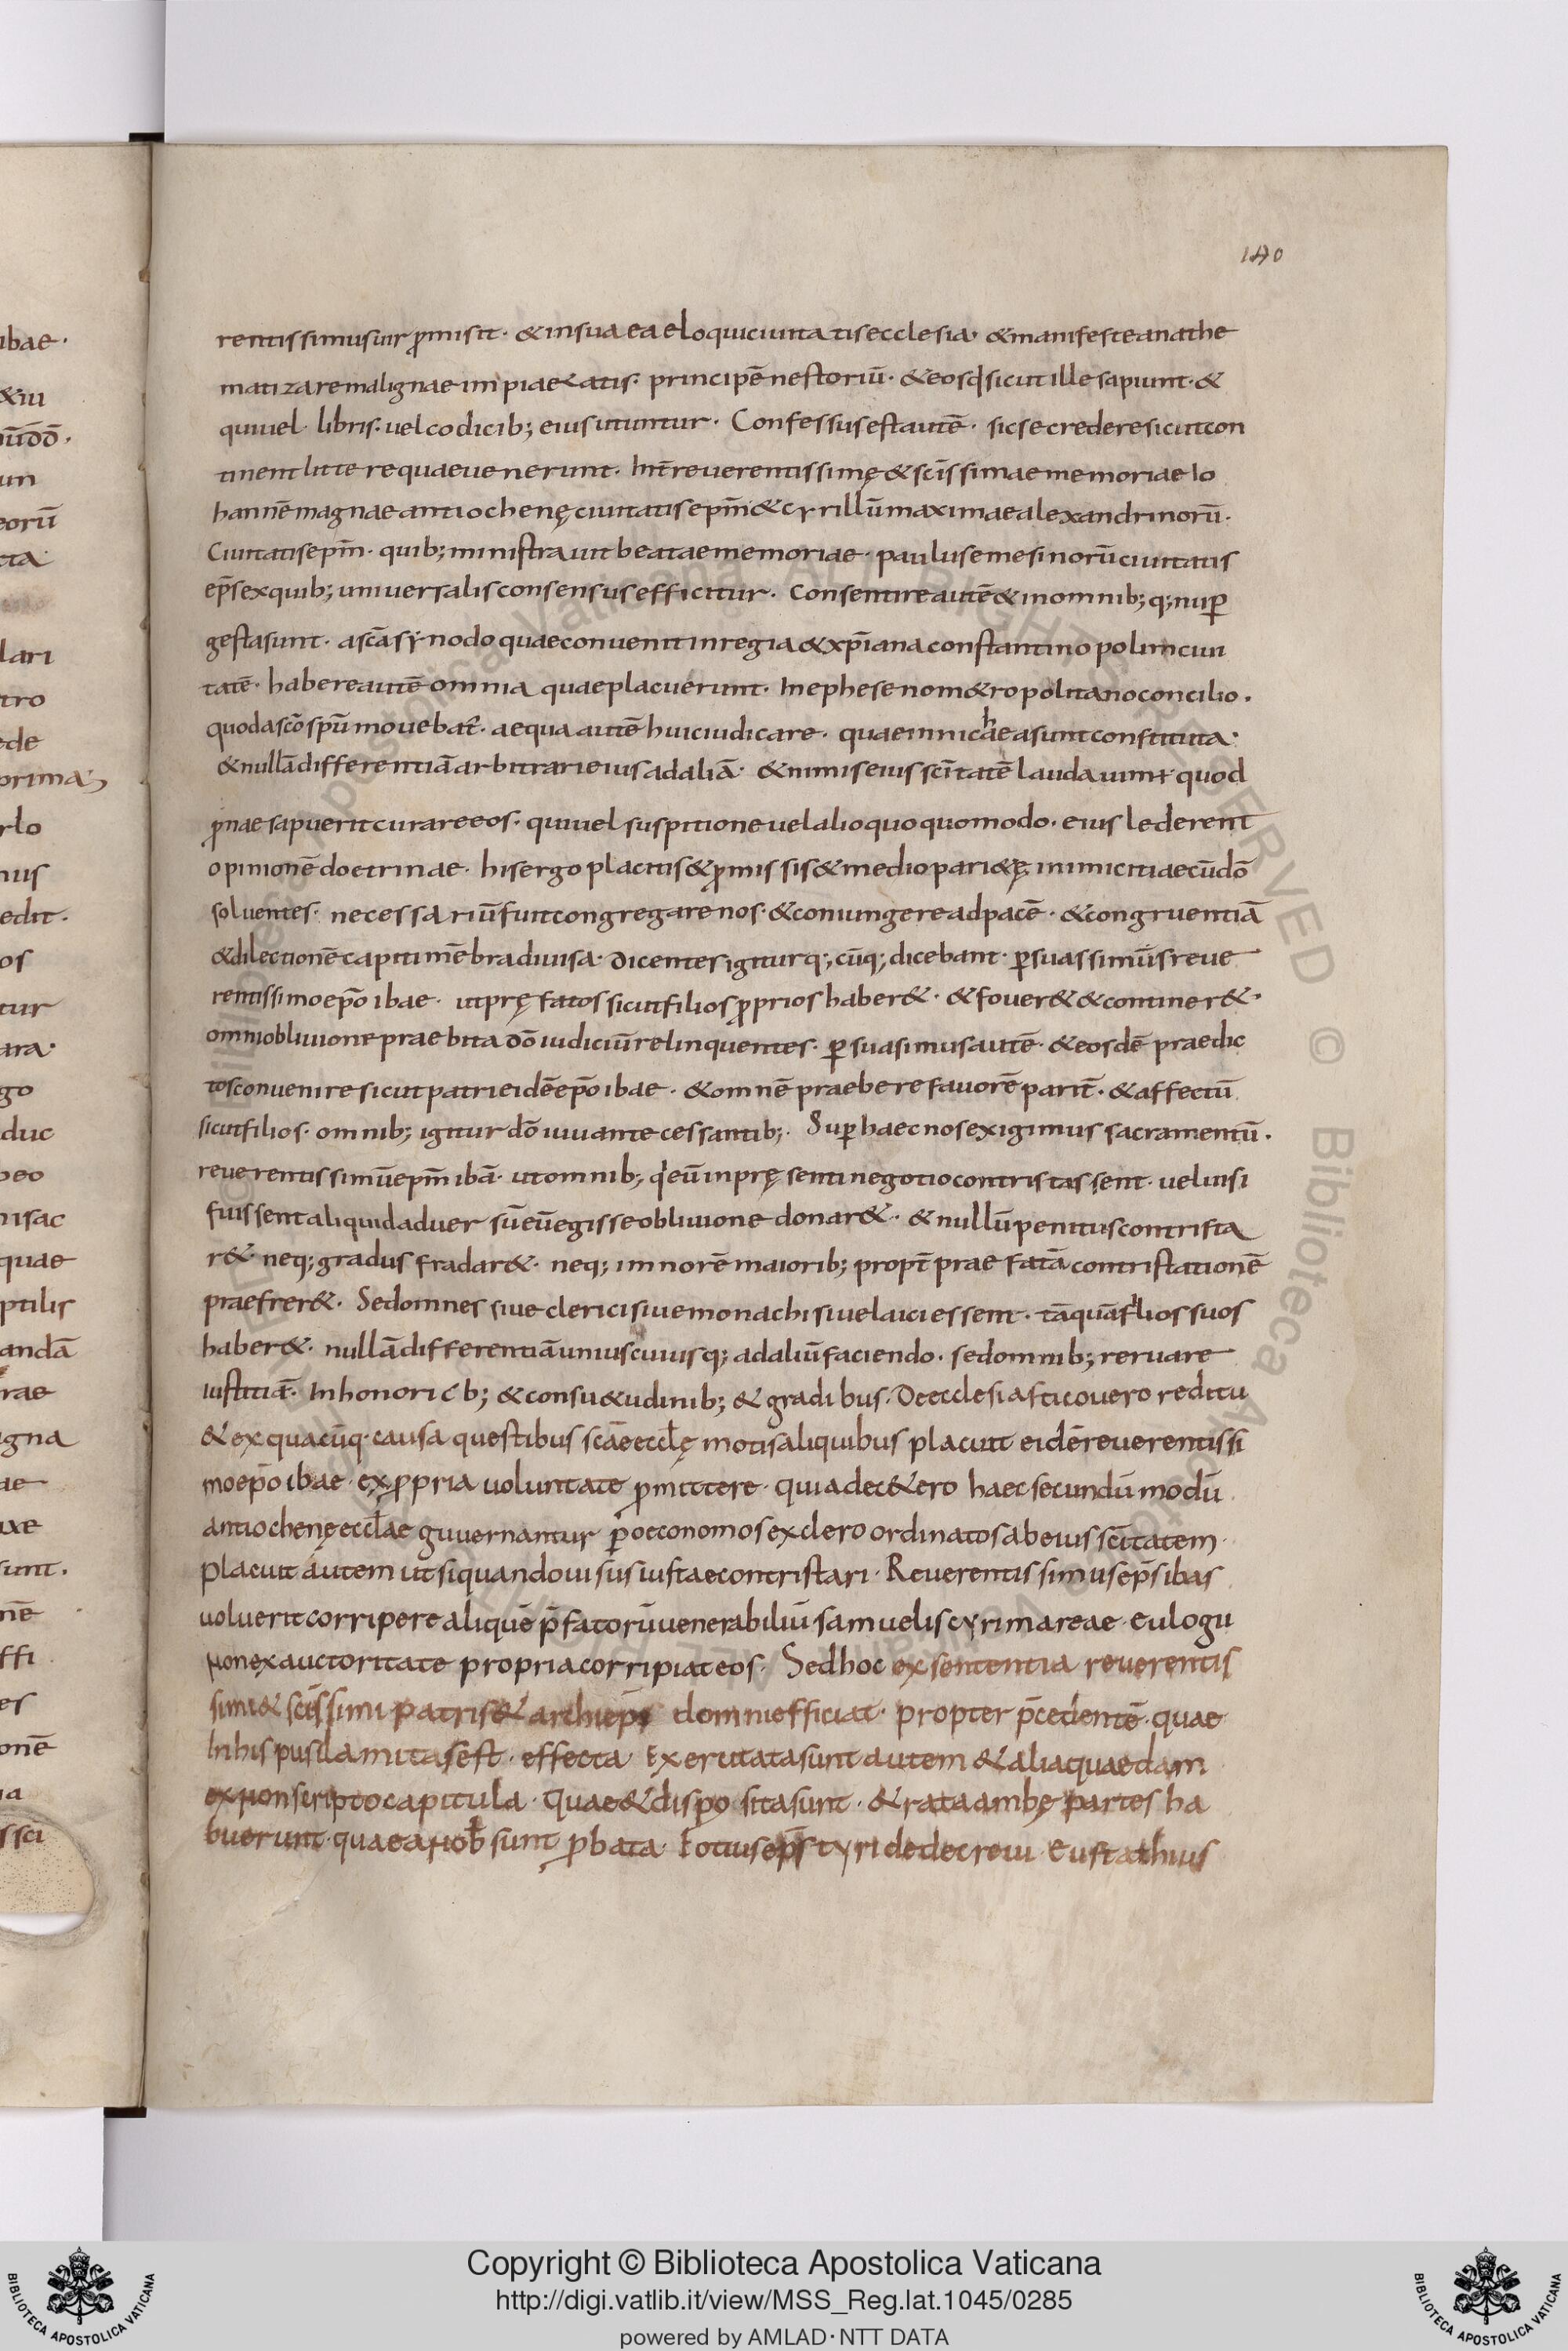 ibae·
&iu
nūdō·
un
eorū
cta
lari
tro
ede
prima;
rlo
nus
edit·
os
tur
ara·
go
duc
beo
nisac
quae
ptilis
andā
rae
igna
ae
uxe
sunt·
nē
ffi
es
onē
ua
ssci
140
rentissimusuir ꝓmisit· &insua ea eloquiciuita tisecclesia· &manifesteanathe
matizaremalignae impiaetatis· principē nestoriū· &eosq̄sicut ille sapiunt· &
quiuel· libris· uel codicib; eius utuntur· Confessusestautē· sicse crederesicutcon
tinent litte requaeuenerunt· Int̄ reuerentissimę & sc̄issimae memoriae Io
hannē magnae antiochenę ciuitatis ep̄m & cyrillū maximae alexandrinorū·
Ciuitatisep̄m· quib; ministrauit beataememoriae· paulusemesinorūciuitatis
ep̄sexquib; uniuersalisconsensusefficitur· Consentireautē&inomnib; q;nup̄
gestasunt· ascāsynodo quaeconuenit inregia&xp̄ianaconstantinopolimciui
tatē· habereautē omnia quaeplacuerunt· Inephesenom&ropolitanoconcilio·
quodascōspū mouebat̄· aequa autē huiciudicare· quaeinnicaheasuntconstituta·
&nullādifferentiāarbitrarieiusadaliā· &nimiseiussc̄itatē laudauimus quod
ꝓnaesapueritcurareeos· quiuel suspitioneuelalioquoquomodo· eius lederent
opinionē doctrinae· hisergoplacitis&ꝓmissis&mediopari&ę inimicitiaecūdō
soluentes· necessariūfuitcongregarenos·&coniungereadpacē· &congruentiā
&dilectionē capitimēbradiuisa· dicentesigiturq;cūq; dicebant· p̄suassimūsreue
rentissimoep̄o ibae· utpręfatossicutfiliosꝓprioshaber&· &fouer&&continer&·
omniobliuione praebita dō iudiciūrelinquentes· p̄suasimusautē· &eosdē praedic
tosconuenire sicut patrieidēep̄oibae· &omnē praebere fauorē parit̄· &affectū
sicutfilios· omnib; igitur dō iuuante cessantib;· Sup̄ haecnosexigimus sacramentū·
reuerentissimūep̄m ibā· utomnib; q̄eū inprę senti negotiocontristassent· ueluisi
fuissent aliquidaduer sūeūegisseobliuione donar&· & nullūpenituscontrista
r&· neq;gradus fradar&· neq; imnorē maiorib; propt̄ praefatā contristationē
praefrer&· Sedomnes siueclericisiuemonachisiuelaiciessent· tāquāfilios suos
haber&· nullādifferentiāuniuscuiusq; adaliūfaciendo· sedomnib; reruare
iustitiā· Inhonoricb; &consu&udinib; & gradibus· Deecclesiasticouero reditu
& ex quacūq· causa questibus scāe eccl̄ę motisaliquibus placuit eidēreuerentissi
moep̄o ibae· exꝓpria uoluntate ꝓmittere· quiadec&ero haec secundū modū
antiochenę eccl̄ae guuernantur p̄ oeconomosexclero ordinatosabeiussc̄itatem·
Placuit autem utsiquandouisusiustaecontristari· Reuerentissimusep̄s ibas
uoluerit corripere aliquē p̄fatorū uenerabiliū samuelis cyri mareae· eulogii
Nonexauctoritate propriacorripiateos· Sedhoc exsententia reuerentis
simi& sc̄issimi patris& archiep̄i domniefficiat· propter p̄cedentē· quae
Inhispusilamitasest· effecta· Exerutatasunt autem &aliaquaedam
exNonscriptocapitula· quae&dispo sitasunt· &rataambę partes ha
buerunt· quaeaNob̄ sunt ꝓbata· Fotiusep̄s tyri dedecreui· Eustathius
Copyright © Biblioteca Apostolica Vaticana
http://digi.vatlib.it/view/MSS_Reg.lat.1045/0285
powered by AMLAD·NTT DATA